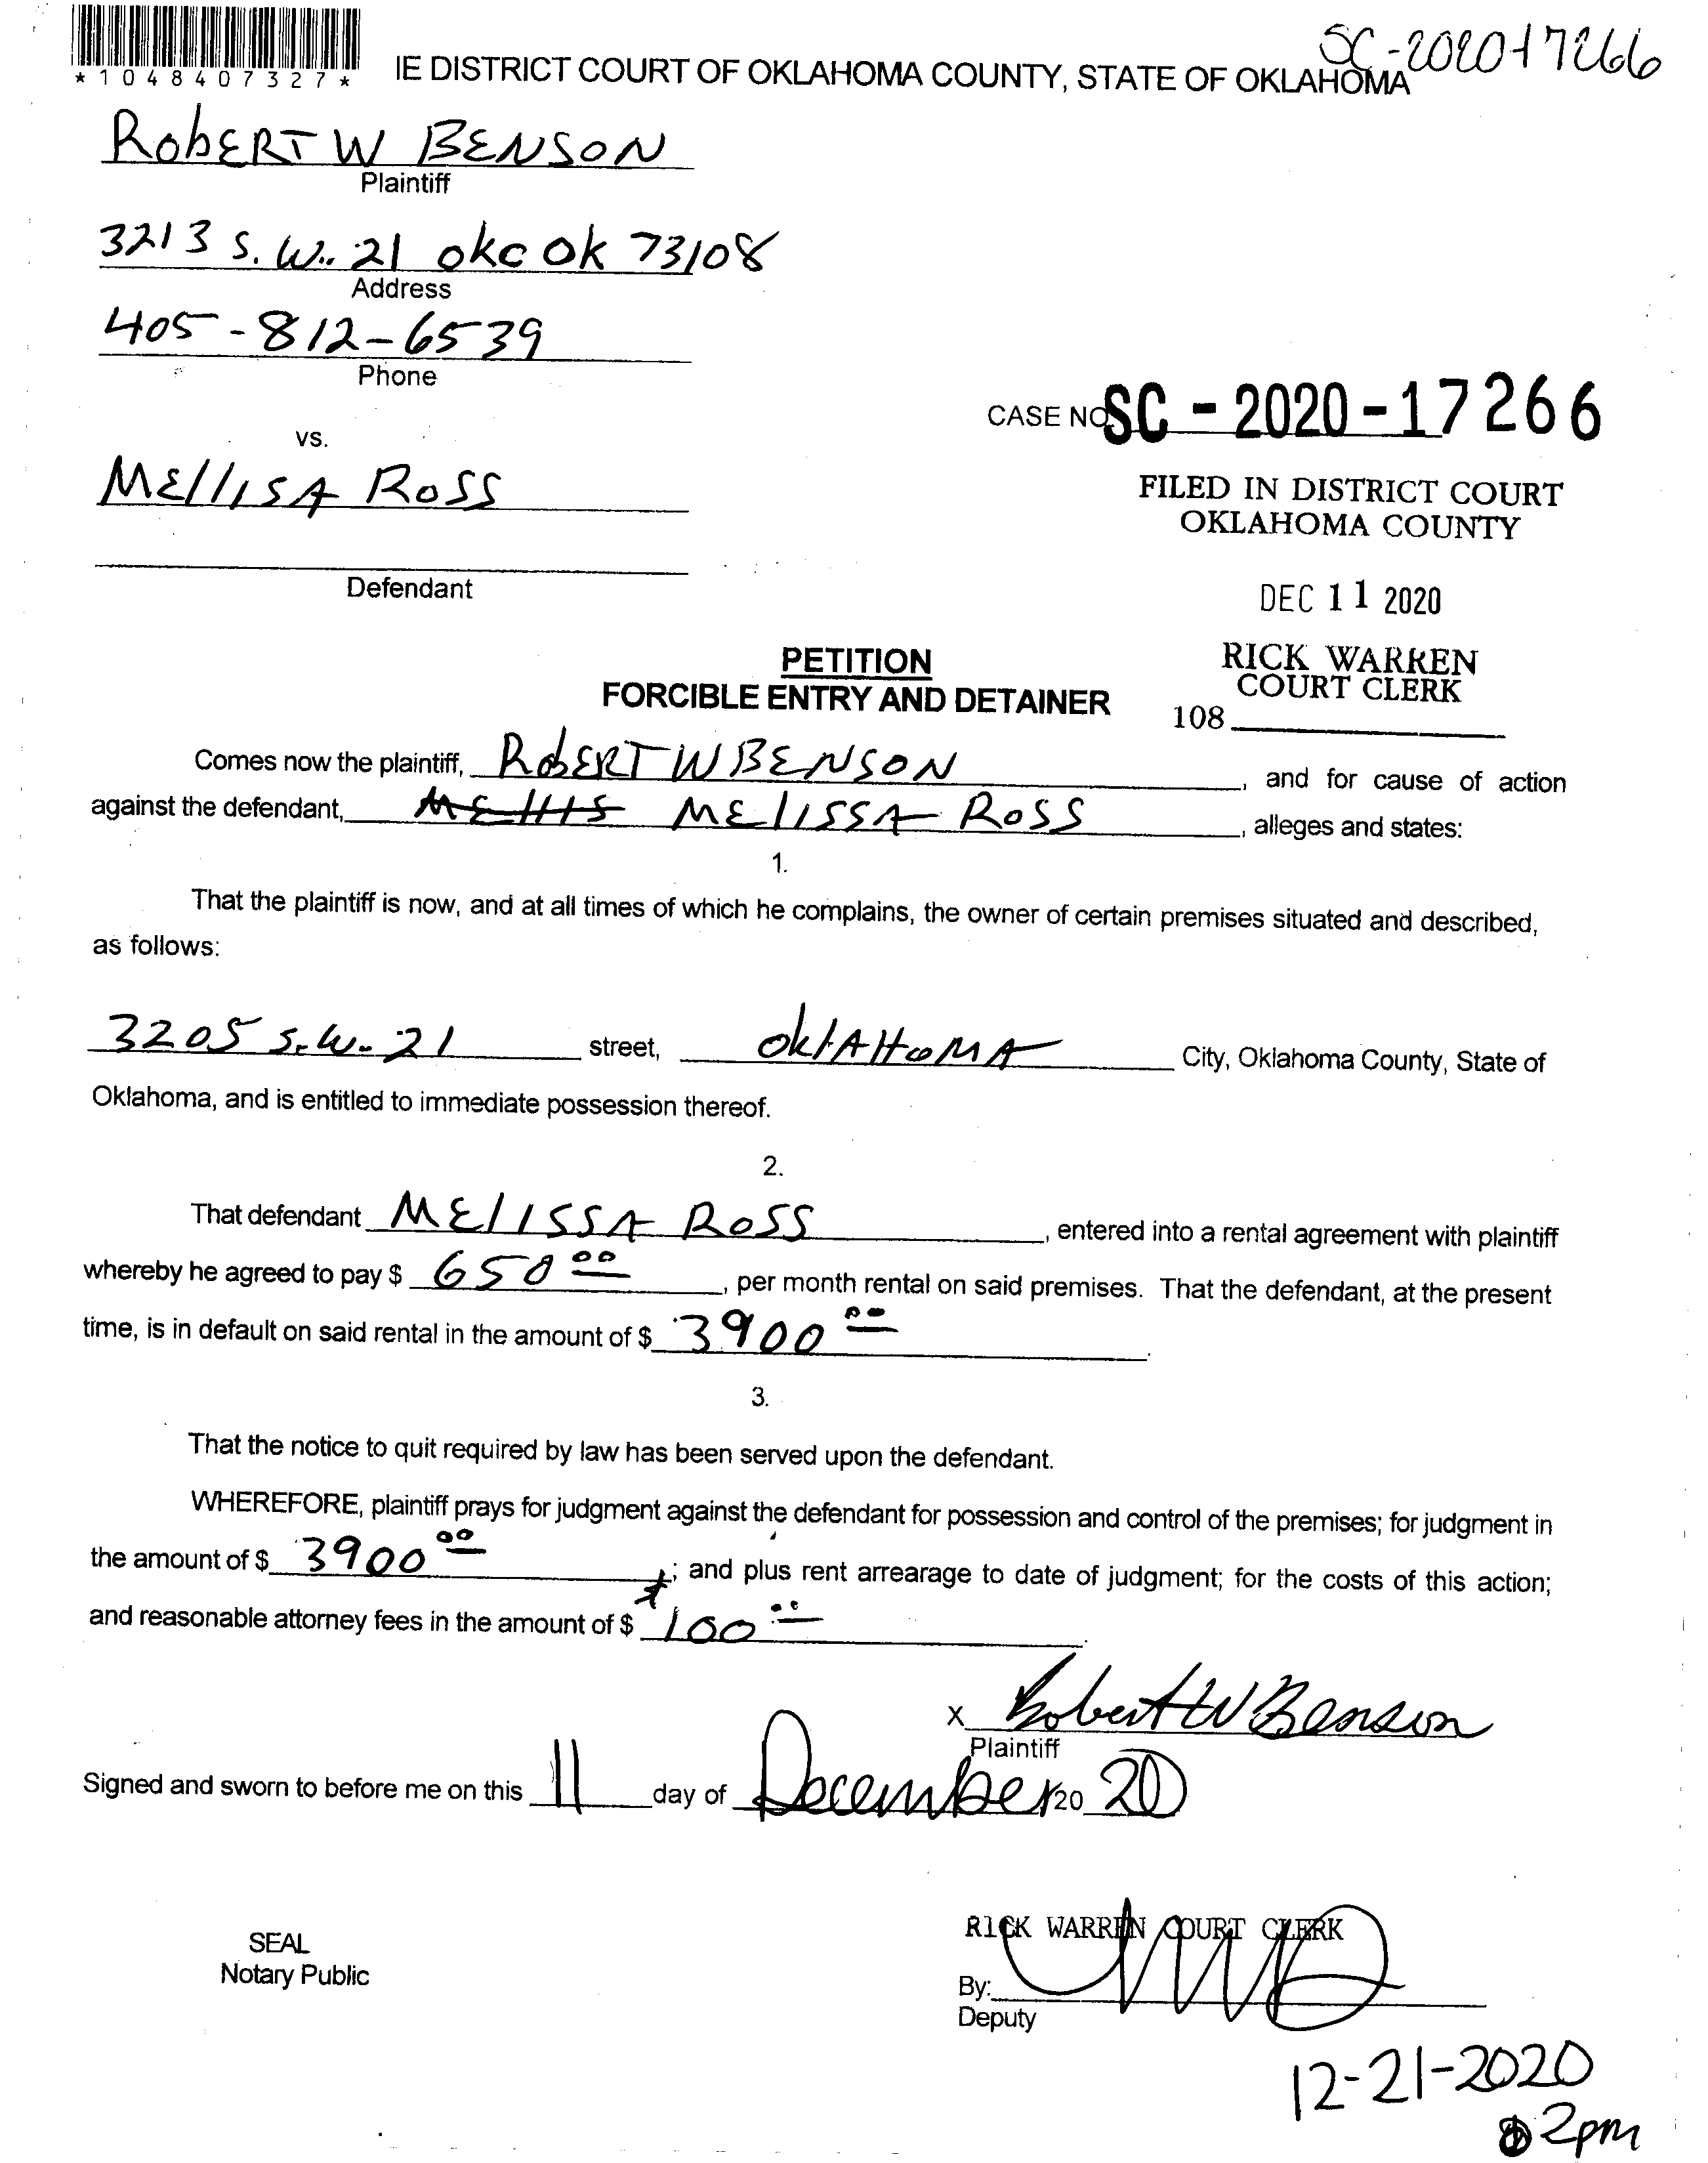 SC-2020-17266
*1048407327*
IE DISTRICT COURT OF OKLAHOMA COUNTY, STATE OF OKLAHOMA
RobERT W BENSON
Plaintiff
3213 S. W.. 21 okc Ok 73108
Address
405-812-6539
Phone
CASE NO. SC - 2020 - 17266
vs.
MEllISA ROSS
FILED IN DISTRICT COURT
OKLAHOMA COUNTY
Defendant
DEC 11 2020
PETITION
FORCIBLE ENTRY AND DETAINER
RICK WARREN
COURT CLERK
108
Comes now the plaintiff, RobERT W BENSON, and for cause of action
against the defendant, MEllIS MElISSA ROSS, alleges and states:
1.
That the plaintiff is now, and at all times of which he complains, the owner of certain premises situated and described,
as follows:
3205 S.W. 21 street, OklAHOMA City, Oklahoma County, State of
Oklahoma, and is entitled to immediate possession thereof.
2.
That defendant MElISSA ROSS, entered into a rental agreement with plaintiff
whereby he agreed to pay $ 650 00, per month rental on said premises. That the defendant, at the present
time, is in default on said rental in the amount of $ 3900 00.
3.
That the notice to quit required by law has been served upon the defendant.
WHEREFORE, plaintiff prays for judgment against the defendant for possession and control of the premises; for judgment in
the amount of $ 3900 00; and plus rent arrearage to date of judgment; for the costs of this action;
and reasonable attorney fees in the amount of $ 100 00.
X Robert W Benson
Plaintiff
Signed and sworn to before me on this 11 day of December 20 20
SEAL
Notary Public
RICK WARREN COURT CLERK
By:
Deputy
12-21-2020
2pm